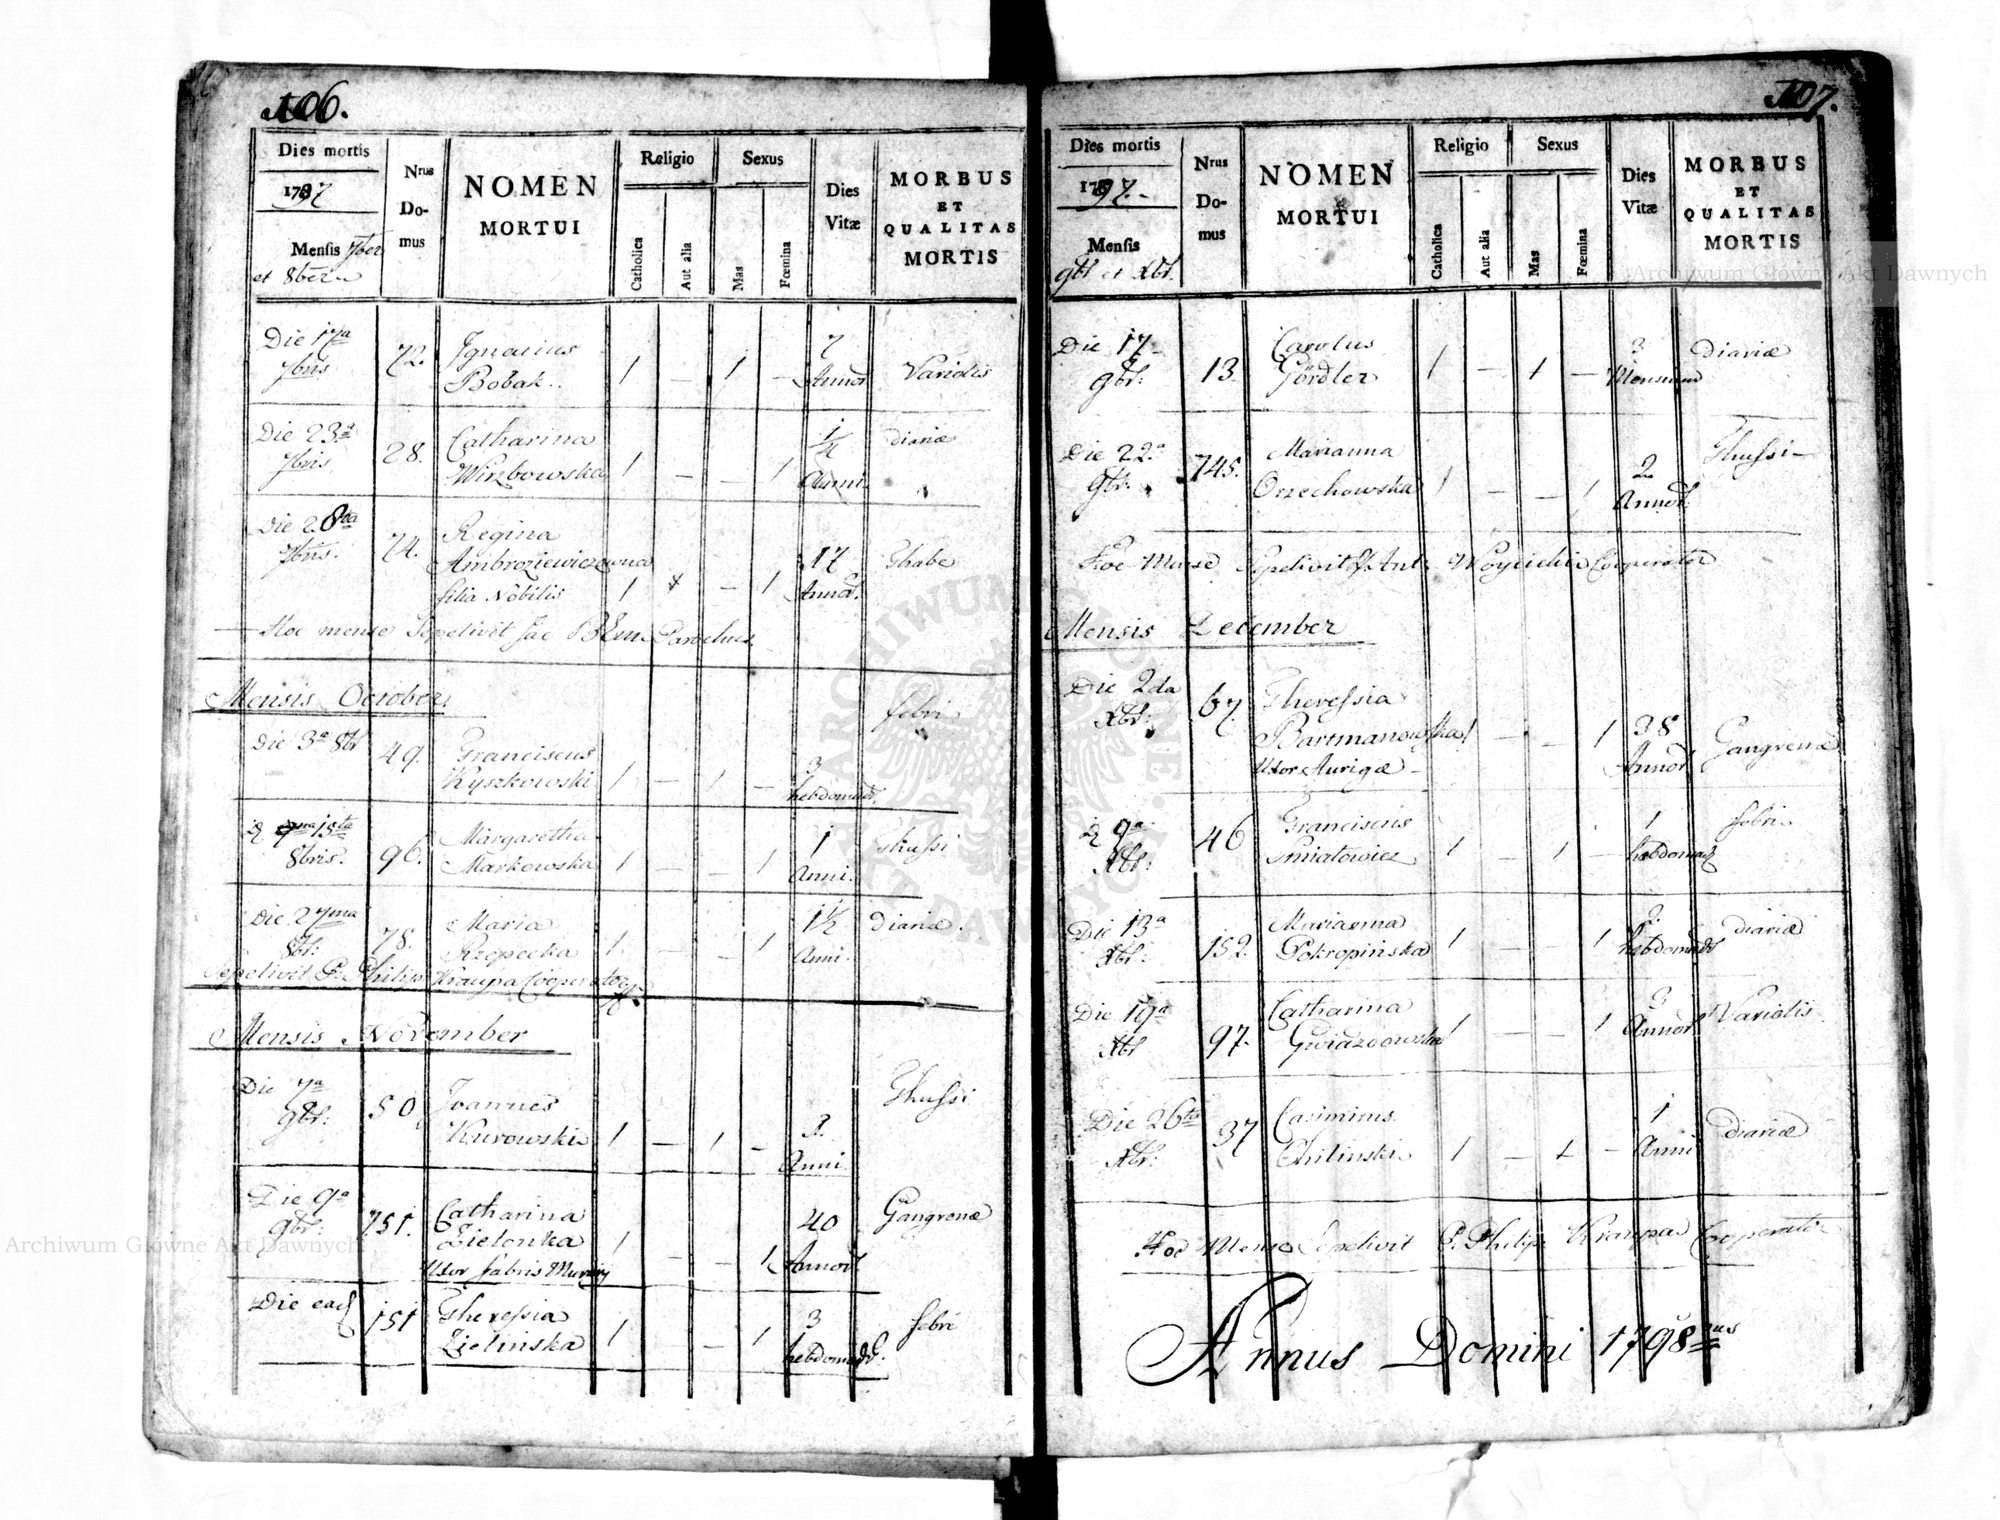 106.
Dies mortis
1797
Mensis 7ber
et 8bern
Nrus
Do-
mus
NOMEN
MORTUI
Religio
Catholica
Aut alia
Sexus
Mas
Fœmina
Dies
Vitæ
MORBUS
ET
QUALITAS
MORTIS
Die 17a
7bris
72.
Ignatius
Bobak.
1 — 1 —
7
Annor
Variolis
Die 23a
7bris
28.
Catharina
Wirzbowska
1 — — 1
1/4
Anni
diariæ
Die 28va
7bris.
74.
Regina
Ambroziewiczowna
filia Nobilis
1 — 1
17
Annor.
Thabe
Hoc mense Sepelivit Jac Parochus
Mensis October
Die 3a 8br
49.
Franciscus
Kyszkowski
1 — 1 —
3
hebdomad.
febri
15ta
8bris.
96.
Margaretha
Markowska
1 — — 1
1
Anni.
thussi
Die 27ma
8br:
78.
Maria
Rzepecka
1 — — 1
1½
Anni.
Diariæ.
Sepelivit P. Philip Kraupa Cooperator
Mensis November
Die 7a
9br:
50
Joannes
Kurowski
1 — 1 —
3.
Anni
Thussi
Die 9a
9br:
151.
Catharina
Zielonka
Uxor fabris Murarii
1 — — 1
40
Annor
Gangrenæ
Die ead
151
Theressia
Zielinska
1 — 1
3
hebdomad.
febri
107.
Dies mortis
1797.
Mensis
9br et Xbr.
Nrus
Do-
mus
NOMEN
MORTUI
Religio
Catholica
Aut alia
Sexus
Mas
Fœmina
Dies
Vitæ
MORBUS
ET
QUALITAS
MORTIS
Die 17
9br:
13.
Carolus
Gördler
1 — 1 —
3
Mensium
Diariæ
Die 22a
9br.
145.
Marianna
Orzechowska
1 — — 1
2
Annor.
Thussi
Hoc Mense Sepelivit Ant: Woycicki Cooperator
Mensis December
Die 2da
Xbr:
67
Theressia
Bartmanowska
Uxor Aurigæ
1 — — 1
38
Annor
Gangrenæ
9a
Xbr:
46
Franciscus
Kniatowicz
1 — 1 —
1
hebdomad
febri
Die 13a
Xbr:
152.
Marianna
Pokropinska
1 — — 1
2.
hebdomad
diariæ
Die 19a
Xbr
97.
Catharina
Gwiazdowska
1 — — 1
3
Annor.
Variolis
Die 26ta
Xbr:
37
Casimirus
Chilinski
1 — 1 —
1
Anni
Diariæ
Hoc Mense Sepelivit P. Philip Kraupa Cooperator
Annus Domini 1798vus
Archiwum Główne Akt Dawnych
Archiwum Główne Akt Dawnych
ARCHIWUM GŁÓWNE AKT DAWNYCH